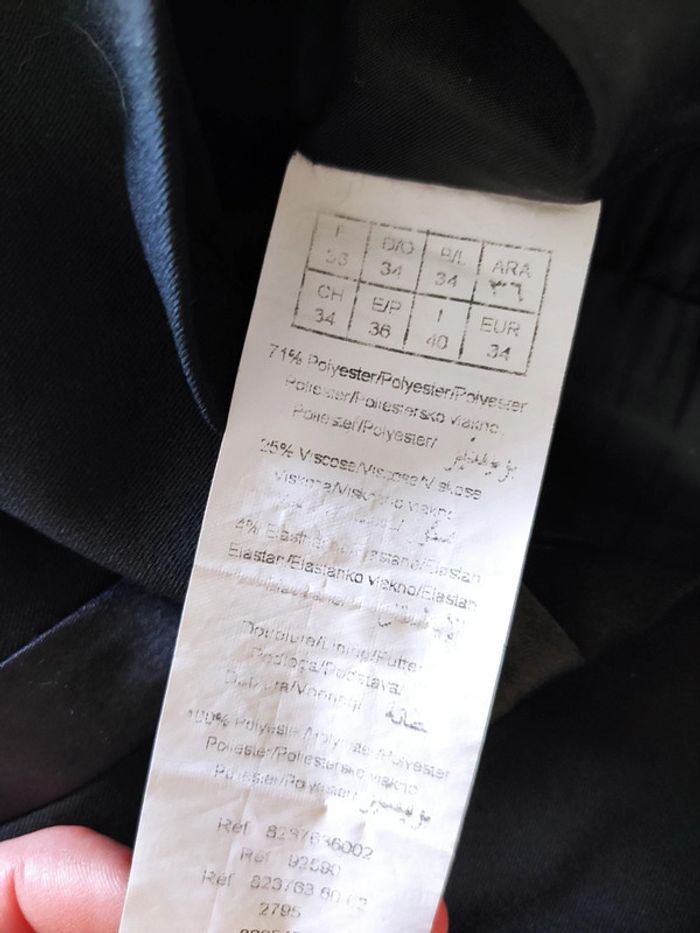 F D/O P/L ARA
36 34 34 ٣٦
CH E/P I EUR
34 36 40 34
71% Polyester/Polyester/Polyester
Poliester/Poliestersko vlakno
Poliester/Polyester/ بوليستير
25% Viscose/Viscose/Viskose
Viskoza/Viskozno vlakno
4% Elasthanne/Elastano/Elastan
Elastan/Elastanko vlakno/Elastan
Doublure/Lining/Futter
Podloga/Podstava/
بطانة
100% Polyester/Polyester/Polyester
Poliester/Poliestersko vlakno
Poliester/Polyester/ بوليستير
Ref 8237636002
Ref 92590
Ref 823763 60 02
2795